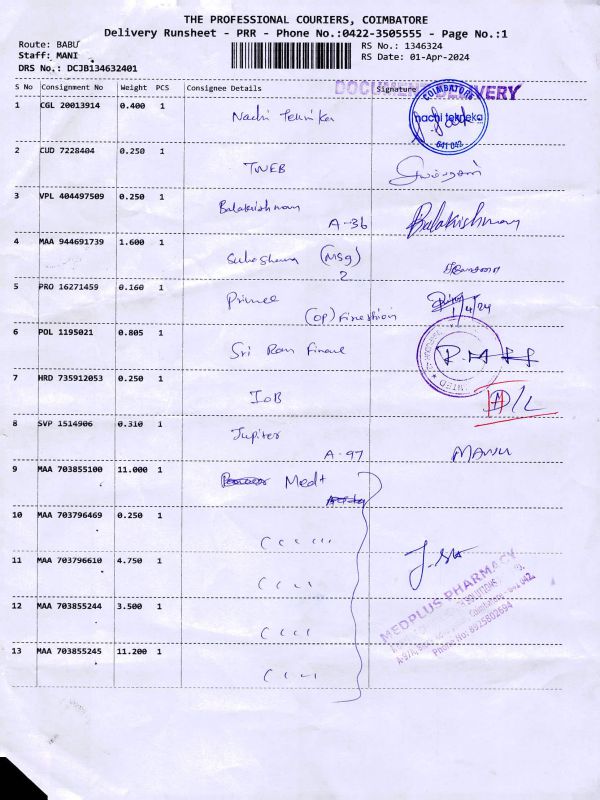 THE PROFESSIONAL COURIERS, COIMBATORE
Delivery Runsheet - PRR - Phone No.:0422-3505555 - Page No.:1
Route: BABU
Staff: MANI
DRS No.: DCJB134632401
RS No.: 1346324
RS Date: 01-Apr-2024
DOCUMENT DELIVERY
S No Consignment No Weight PCS Consignee Details Signature
1 CGL 20013914 0.400 1
Nachi Teknika
COIMBATORE
nachi tekneka
641 042
2 CUD 7228404 0.250 1
TWEB
3 VPL 404497509 0.250 1
Balakrishnan
A-36
Balakrishnan
4 MAA 944691739 1.600 1
(MSg)
2
5 PRO 16271459 0.160 1
Prince
(OP) Firestion
1/4/24
6 POL 1195021 0.805 1
Sri Ram Finance
7 HRD 735912053 0.250 1
IOB
D/L
8 SVP 1514906 0.310 1
Jupiter
A-97
MANU
9 MAA 703855100 11.000 1
Med+
10 MAA 703796469 0.250 1
11 MAA 703796610 4.750 1
12 MAA 703855244 3.500 1
13 MAA 703855245 11.200 1
MEDPLUS PHARMACY
Coimbatore - 641 042.
Phone No: 8925802694